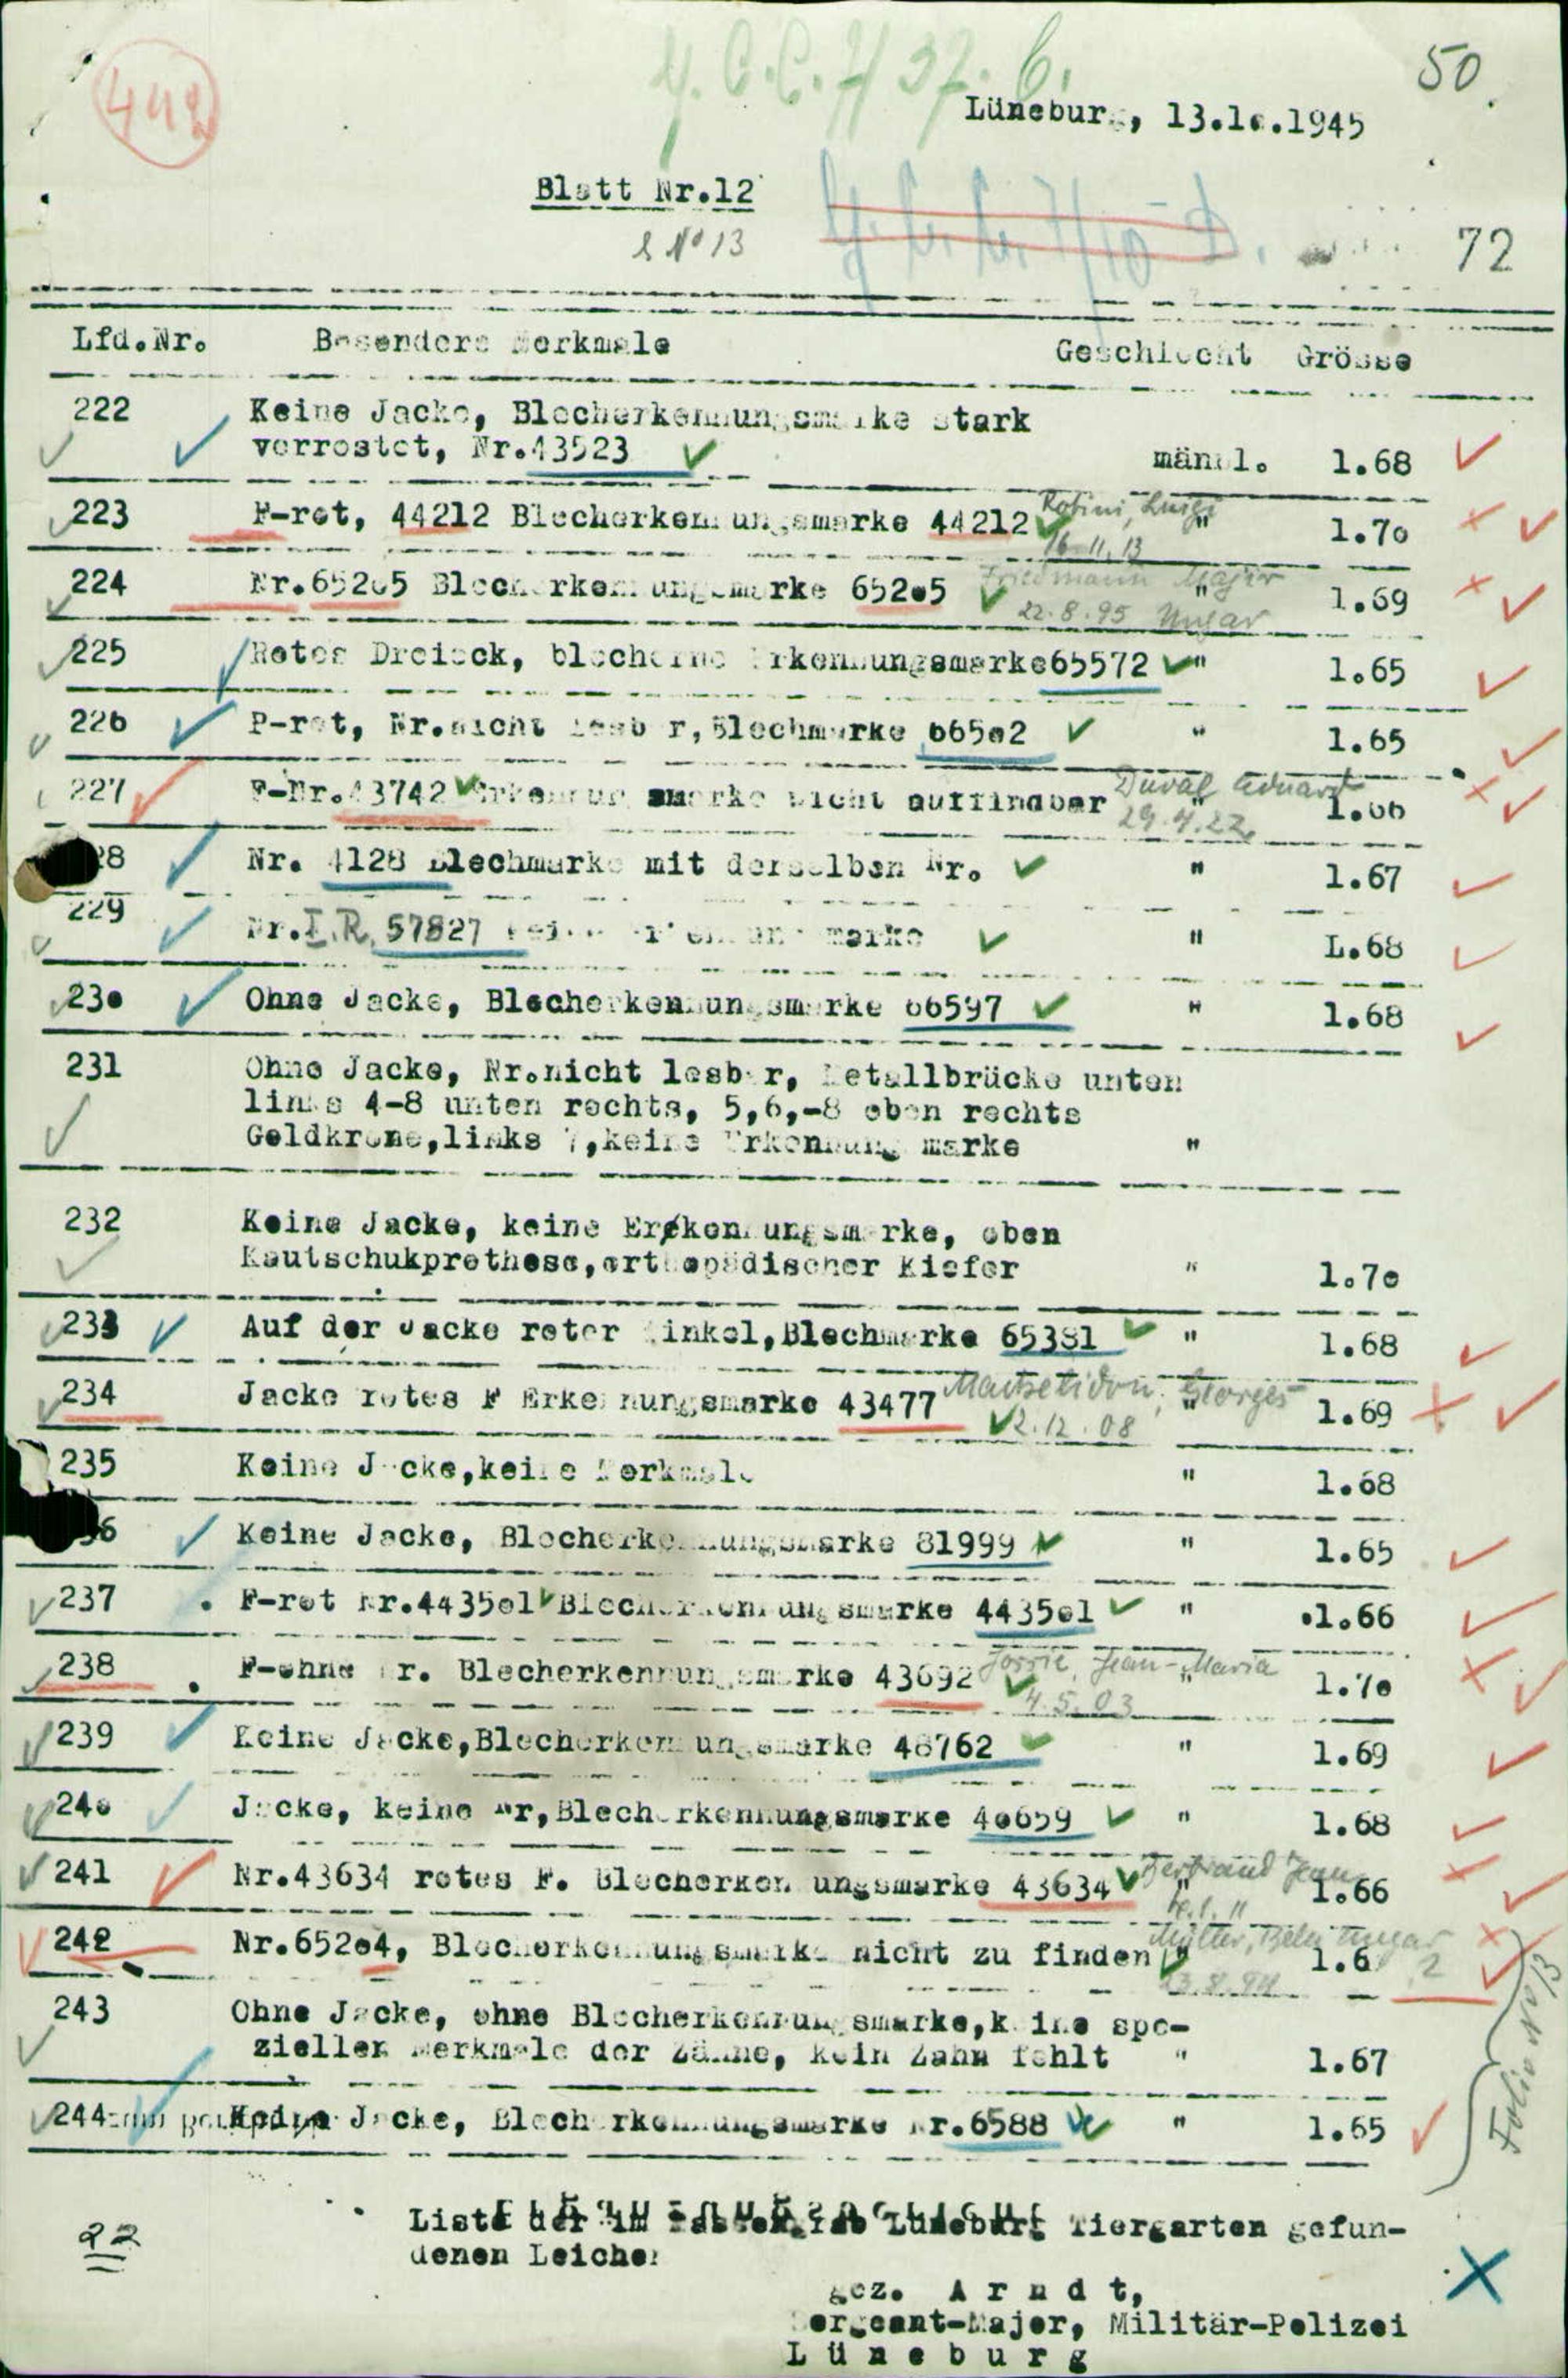 50
442
Lüneburg, 13.10.1945
Blatt Nr.12
& No 13
72
Lfd.Nr. Besondere Merkmale Geschlecht Grösse
222 Keine Jacke, Blecherkennungsmarke stark
verrostet, Nr.43523 männl. 1.68
223 F-rot, 44212 Blecherkennungsmarke 44212 Robini, Luigi " 1.70
16.11.13
224 Nr.65205 Blecherkennungsmarke 65205 Friedmann Major " 1.69
22.8.95 Ungar
225 Rotes Dreieck, blecherne Erkennungsmarke65572 " 1.65
226 P-rot, Nr.nicht lesbar,Blechmarke 66502 " 1.65
227 F-Nr.43742 Erkennungsmarke nicht auffindbar Duval Eduard " 1.66
29.4.22
228 Nr. 4128 Blechmarke mit derselben Nr. " 1.67
229 Nr.I.R. 57827 keine Erkennungsmarke " 1.68
230 Ohne Jacke, Blecherkennungsmarke 66597 " 1.68
231 Ohne Jacke, Nr.nicht lesbar, Metallbrücke unten
links 4-8 unten rechts, 5,6,-8 oben rechts
Goldkrone,links 7,keine Erkennungsmarke "
232 Keine Jacke, keine Erkennungsmarke, oben
Kautschukprothese,orthopädischer Kiefer " 1.70
233 Auf der Jacke roter Winkel,Blechmarke 65381 " 1.68
234 Jacke rotes F Erkennungsmarke 43477 Georges " 1.69
2.12.08
235 Keine Jacke,keine Merkmale " 1.68
236 Keine Jacke, Blecherkennungsmarke 81999 " 1.65
237 F-rot Nr.443501 Blecherkennungsmarke 443501 " 1.66
238 F-ohne Nr. Blecherkennungsmarke 43692 Jorrie, Jean-Maria " 1.70
4.5.03
239 Keine Jacke,Blecherkennungsmarke 48762 " 1.69
240 Jacke, keine Nr,Blecherkennungsmarke 40659 " 1.68
241 Nr.43634 rotes F. Blecherkennungsmarke 43634 Bertrand Jean " 1.66
242 Nr.65204, Blecherkennungsmarke nicht zu finden Müller, Bela Ungar " 1.6 2
243 Ohne Jacke, ohne Blecherkennungsmarke,keine spe-
ziellen Merkmale der Zähne, kein Zahn fehlt " 1.67
244 Keine Jacke, Blecherkennungsmarke Nr.6588 " 1.65
Folio No 13
22
Liste der im Lüneburg Tiergarten gefun-
denen Leichen
gez. A r n d t,
Sergeant-Major, Militär-Polizei
L ü n e b u r g